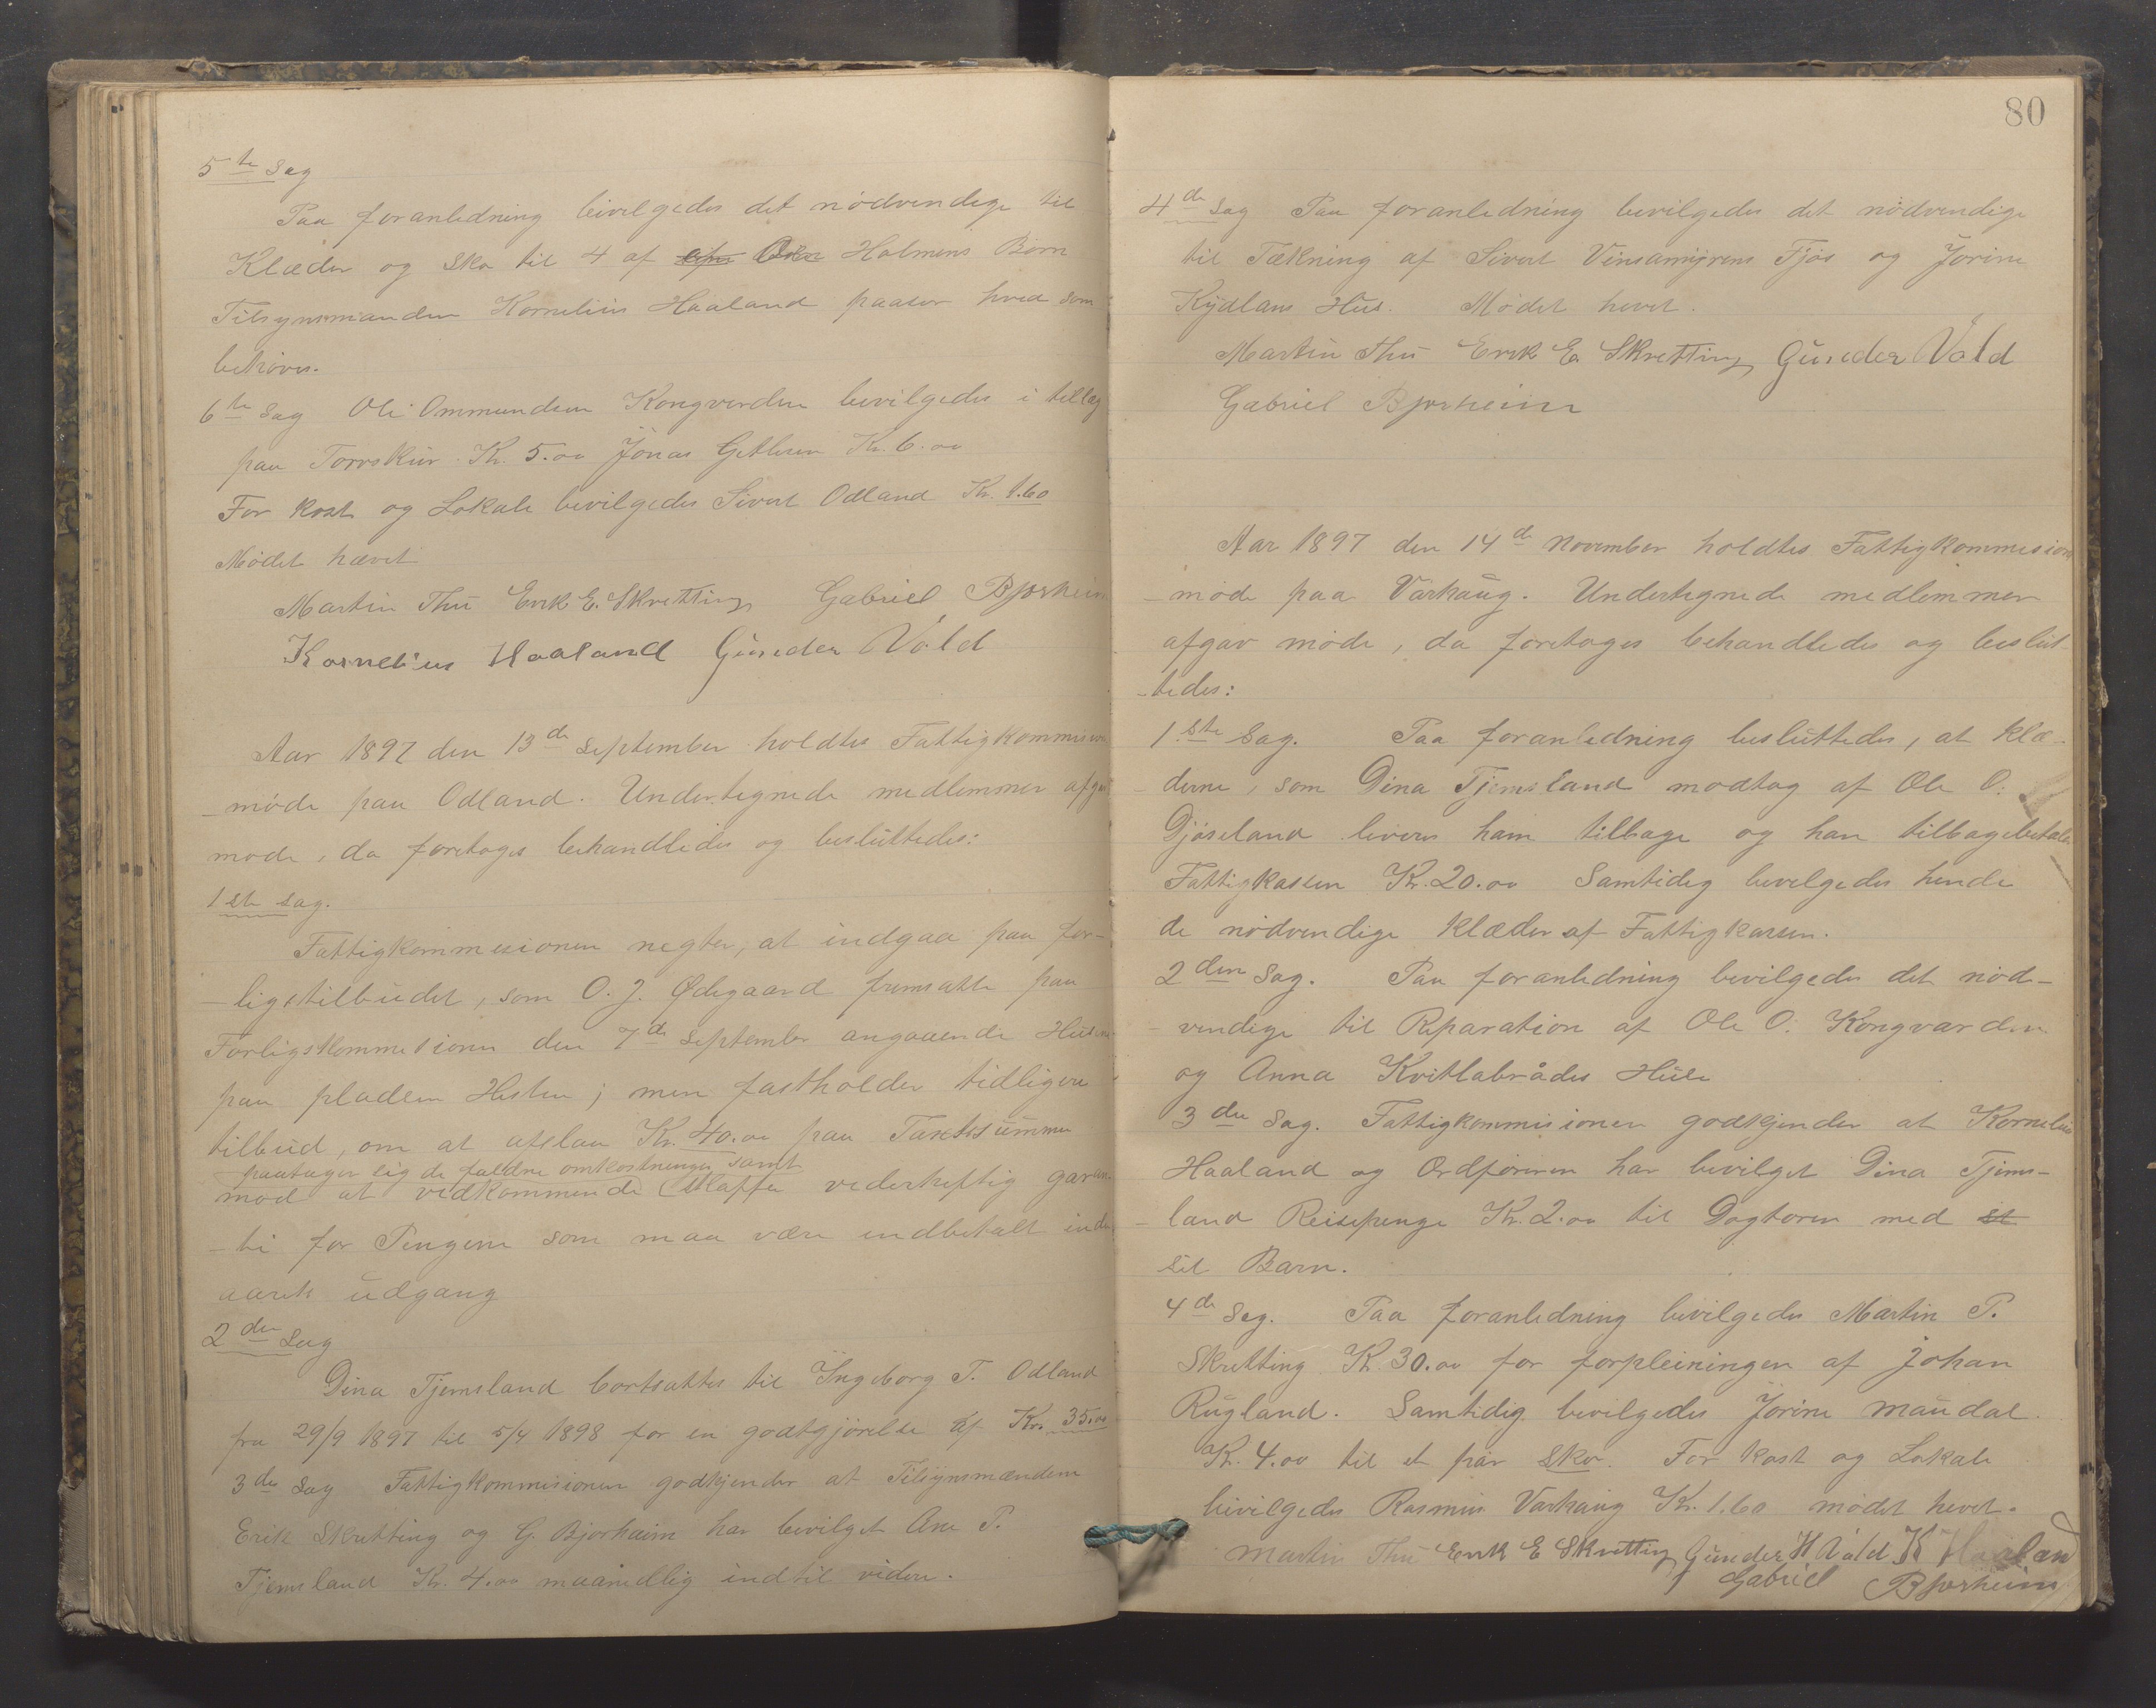 5te Sag
Paa foranledning bivilgedes det nödvendige til
Klæder og Sko til 4 af Holmens Börn
Tilsynsmanden Kornelius Haaland paaser hvad som
behöves.
6te Sag Ole Ommundsen Kongevarden bevilgedes i tillæg
paa Torvskur Kr. 5.00 Jonas Kr. 6.00
For kost og Lokale bevilgedes Sivert Odland Kr. 1.60
Mødet hævet
Martin Thu Erik E. Skretting Gabriel Bjorheim
Kornelius Haaland Gunder Vold
Aar 1897 den 13de September holdtes Fattigkommision
-møde paa Odland. Undertegnede medlemmer afgav
møde, da foretoges behandledes og besluttedes:
1ste Sag.
Fattigkommisionen negter, at indgaa paa for-
-ligstilbudet, som O. J. Ødegaard fremsatte paa
Forligskommisionen den 7de September angaaende Husene
paa pladsen Hesten; men fastholder tidligere
tilbud, om at afslaa Kr. 40.00 paa Taxtsummen
paatager sig de faldne omkostninger samt
mod at vedkommende skaffer vederheftig garan-
-ti for Pengene som maa være indbetalt inden
aarets udgang
2den Sag
Dina Tjemsland bortsattes til Ingeborg T. Odland
fra 29/9 1897 til 5/4 1898 for en godtgjörelse af Kr. 35.00
3de Sag Fattigkommisionen godkjender at Tilsynsmændene
Erik Skretting og G. Bjorhaim har bevilget Ane P.
Tjemsland Kr. 4.00 maanedlig indtil videre.
80
4de Sag Paa foranledning bevilgedes det nödvendige
til Tækning af Sivert Vinsamyrens Fjös og Jorine
Kydlans Hus. Mødet hevet.
Martin Thu Erik E Skretting Gunder Vold
Gabriel Bjorheim
Aar 1897 den 14de November holdtes Fattigkommision
-møde paa Varhaug. Undertegnede medlemmer
afgav møde, da foretoges behandledes og beslut-
-tedes:
1.ste Sag. Paa foranledning besluttedes, at klæ-
derne, som Dina Tjemsland modtog af Ole O.
Djöseland leveres ham tilbage og han tilbagebetaler
Fattigkassen Kr. 20.00 Samtidig bevilgedes hende
de nödvendige klæder af Fattigkassen.
2den Sag. Paa foranledning bevilgedes det nöd-
vendige til Reparation af Ole O. Kongvarden
og Anna Kvitlabrådes Huse
3die Sag. Fattigkommisionen godkjender at Kornelius
Haaland og Ordføreren har bevilget Dina Tjems-
-land Reisepenge Kr. 2.00 til Dogtoren med st
sit Barn.
4de Sag. Paa foranledning bevilgedes Martin P.
Skretting Kr. 30.00 for forpleiningen af Johan
Rugland. Samtidig bevilgedes Jorine Maudal
Kr. 4.00 til et par sko. For kost og Lokale
bivilgedes Rasmus Varhaug Kr. 1.60 mödet hevet.
Martin Thu Erik E Skretting Gunder H Vold K Haaland
Gabriel Bjorheim